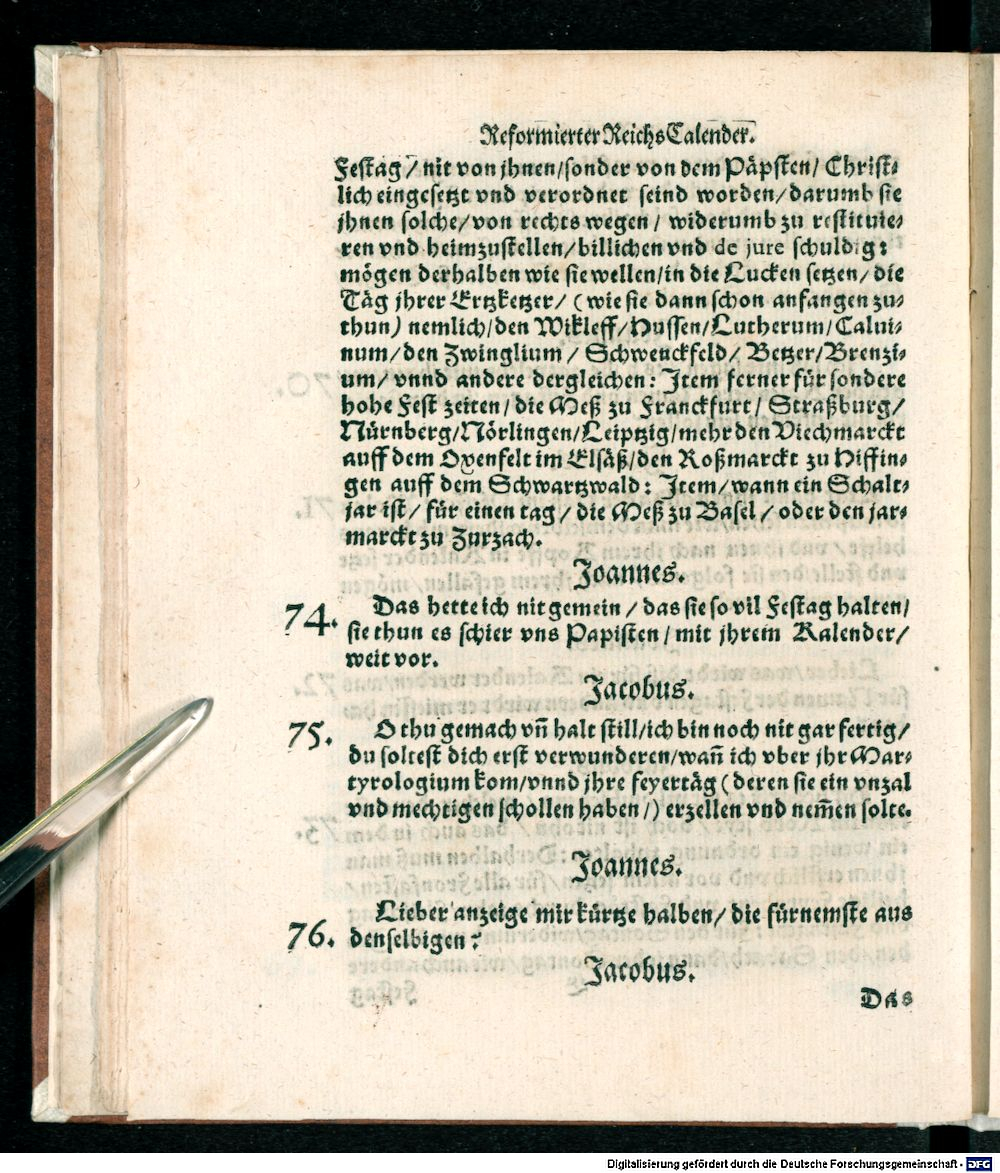 Reformierter Reichs Calender.
Festag / nit von jhnen / sonder von dem Päpsten / Christ-
lich eingesetzt vnd verordnet seind worden / darumb sie
jhnen solche / von rechts wegen / widerumb zu restituie-
ren vnd heimzustellen / billichen vnd de jure schuldig:
mögen derhalben wie sie wellen / in die Lucken setzen / die
Täg jhrer Ertzketzer / (wie sie dann schon anfangen zu-
thun) nemlich / den Wikleff / Hussen / Lutherum / Calui-
num / den Zwinglium / Schwenckfeld / Betzer / Brenzi-
um / vnnd andere dergleichen: Item ferner für sondere
hohe Fest zeiten / die Meß zu Franckfurt / Straßburg /
Nürnberg / Nörlingen / Leiptzig / mehr den Viechmarckt
auff dem Oxenfelt im Elsäß / den Roßmarckt zu Hiffin-
gen auff dem Schwartzwald: Item / wann ein Schalt-
jar ist / für einen tag / die Meß zu Basel / oder den jar-
marckt zu Zurzach.
Joannes.
74. Das hette ich nit gemein / das sie so vil Festag halten /
sie thun es schier vns Papisten / mit jhrem Kalender /
weit vor.
Jacobus.
75. O thu gemach vn̄ halt still / ich bin noch nit gar fertig /
du soltest dich erst verwunderen / wan̄ ich vber jhr Mar-
tyrologium kom / vnnd jhre feyertäg (deren sie ein vnzal
vnd mechtigen schollen haben /) erzellen vnd nem̄en solte.
Joannes.
76. Lieber anzeige mir kürtze halben / die fürnemste aus
denselbigen?
Jacobus.
Das
Digitalisierung gefördert durch die Deutsche Forschungsgemeinschaft - DFG